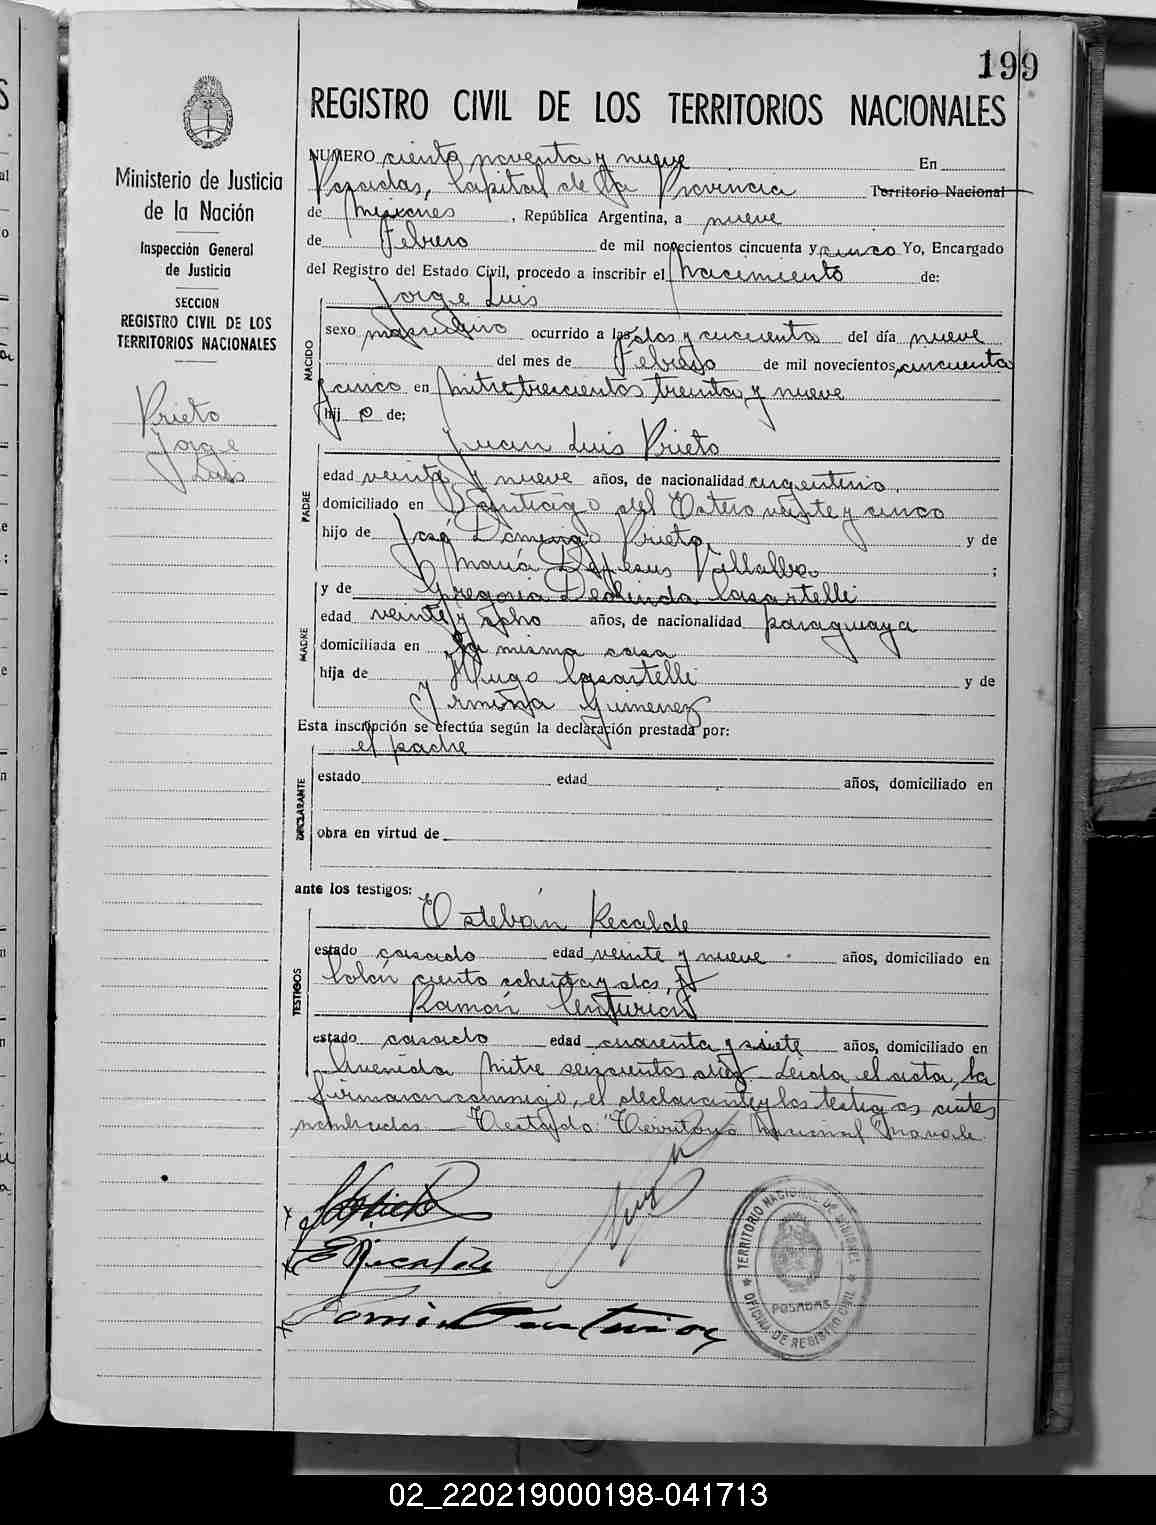 199
REGISTRO CIVIL DE LOS TERRITORIOS NACIONALES
Ministerio de Justicia
de la Nación
Inspección General
de Justicia
SECCION
REGISTRO CIVIL DE LOS
TERRITORIOS NACIONALES
Prieto
Jorge
Luis
NUMERO ciento noventa y nueve En
Posadas, Capital de la Provincia Territorio Nacional
de Misiones, República Argentina, a nueve
de Febrero de mil novecientos cincuenta y cinco Yo, Encargado
del Registro del Estado Civil, procedo a inscribir el Nacimiento de:
Jorge Luis
NACIDO
sexo masculino ocurrido a las dos y cincuenta del día nueve
del mes de Febrero de mil novecientos cincuenta
y cinco en Mitre trescientos treinta y nueve
hij o de;
Juan Luis Prieto
PADRE
edad veinte y nueve años, de nacionalidad argentino,
domiciliado en Santiago del Estero veinte y cinco
hijo de José Domingo Prieto y de
María Dejesus Villalba ;
y de Gregoria Deolinda Casartelli
MADRE
edad veinte y ocho años, de nacionalidad paraguaya
domiciliada en la misma casa
hija de Hugo Casartelli y de
Irminia Gimenez
Esta inscripción se efectúa según la declaración prestada por:
el padre
DECLARANTE
estado edad años, domiciliado en
obra en virtud de
ante los testigos:
Esteban Recalde
TESTIGOS
estado casado edad veinte y nueve años, domiciliado en
Colón ciento ochenta y dos, y
Ramón Centurión
estado casado edad cuarenta y siete años, domiciliado en
Avenida Mitre seiscientos diez. Leida el acta, la
firmaron conmigo, el declarante y los testigos antes
nombrados. — Testado: "Territorio Nacional" no vale.
E Recalde
Ramón Centurión
TERRITORIO NACIONAL DE MISIONES
POSADAS
OFICINA DE REGISTRO CIVIL
02_220219000198-041713